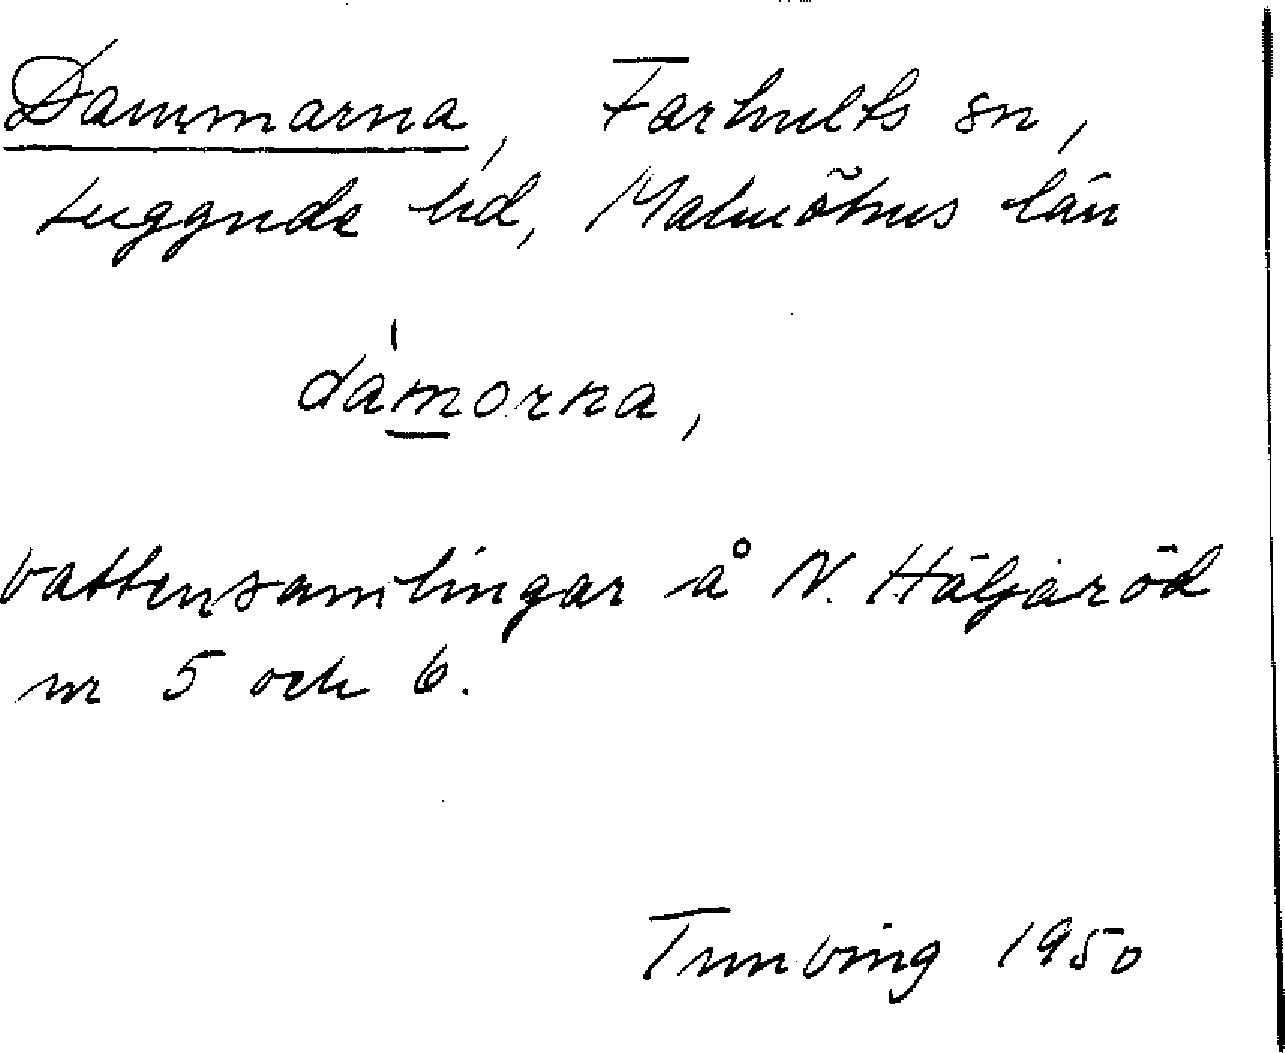 Dammarna, Farhults sn,
Luggude hd, Malmöhus län
dám̲orna,
vattensamlingar å N. Häljaröd
nr 5 och 6.
Tunving 1950